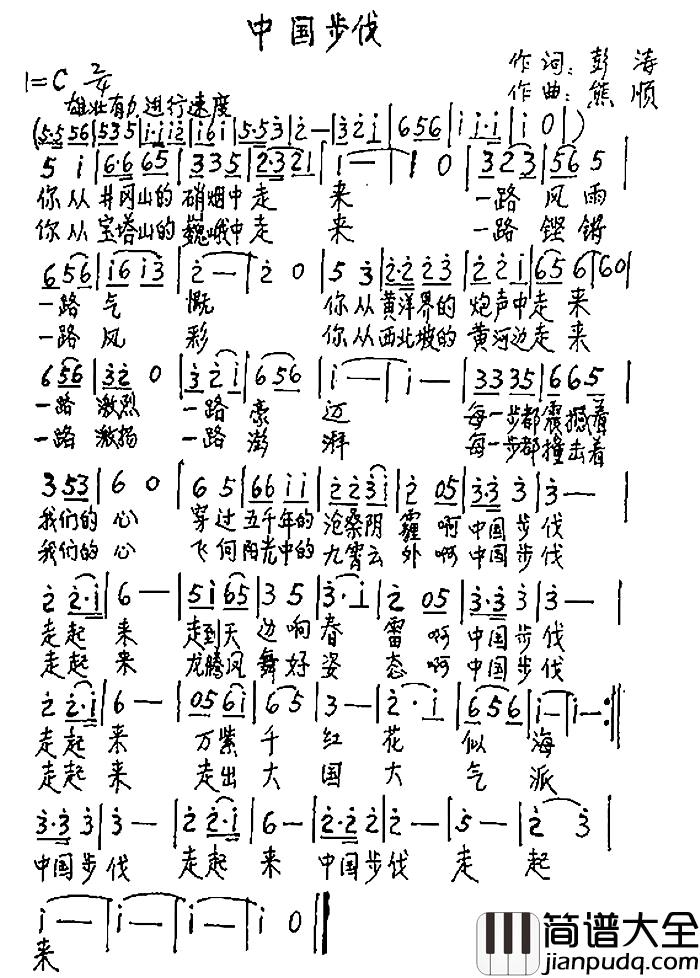 中国步伐
1=C 2/4
作词：彭涛
作曲：熊顺
雄壮有力 进行速度
(5·5 56|535|i·i i2|i6i|5·5 53|2—|32i|656|i i·i|i0|)
5 i|6·6 65|335|2·3 21|i—|i0|323|565|
你从井冈山的硝烟中走来 一路风雨
你从宝塔山的巍峨中走来 一路铿锵
656|i6i3|2—|20|53|2·2 23|22i|656|60|
一路气慨 你从黄洋界的炮声中走来
一路风彩 你从西北坡的黄河边走来
656|320|32i|656|i—|i—|3335|665|
一路激烈 一路豪迈 每一步都震撼着
一路激扬 一路澎湃 每一步都撞击着
353|60|65|66ii|223i|205|3·33|3—|
我们的心 穿过五千年的沧桑阴霾啊中国步伐
我们的心 飞向阳光中的九霄云外啊中国步伐
22·i|6—|5i65|35|3·i|205|3·33|3—|
走起来 走到天边响春雷啊中国步伐
走起来 龙腾凤舞好姿态啊中国步伐
22·i|6—|056i|65|3—|2·i|656|i—|i—:||
走起来 万紫千红花似海
走起来 走出大国大气派
3·33|3—|22·i|6—|2·22|2—|5—|23|
中国步伐 走起来 中国步伐走起
i—|i—|i—|i0||
来
简谱大全
jianpudq.com